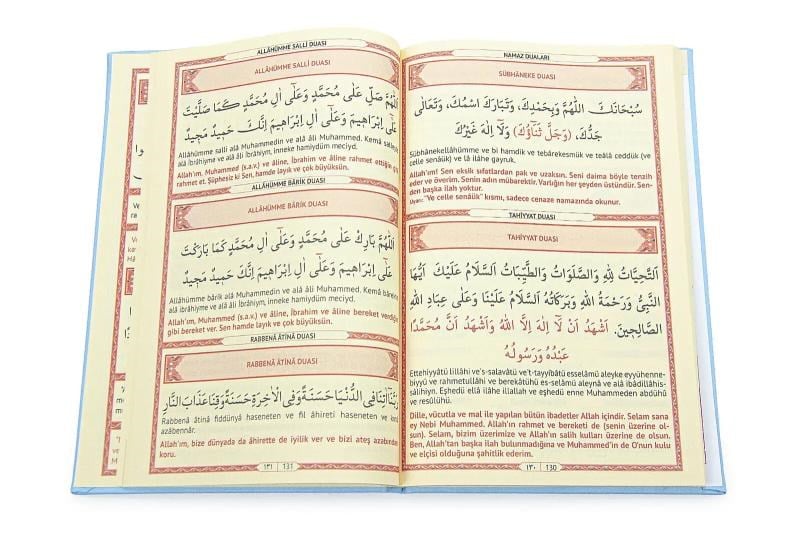 NAMAZ DUALARI
SÜBHÂNEKE DUASI
سُبْحَانَكَ اللّٰهُمَّ وَبِحَمْدِكَ، وَتَبَارَكَ اسْمُكَ، وَتَعَالٰى
جَدُّكَ، (وَجَلَّ ثَنَاؤُكَ) وَلَا اِلٰهَ غَيْرُكَ
Sübhânekellâhümme ve bi hamdik ve tebârekesmük ve teâlâ ceddük (ve
celle senâük) ve lâ ilâhe gayruk.
Allah'ım! Sen eksik sıfatlardan pak ve uzaksın. Seni daima böyle tenzih
eder ve överim. Senin adın mübarektir. Varlığın her şeyden üstündür. Sen-
den başka ilah yoktur.
Uyarı: "Ve celle senâük" kısmı, sadece cenaze namazında okunur.
TAHİYYAT DUASI
TAHİYYAT DUASI
اَلتَّحِيَّاتُ لِلّٰهِ وَالصَّلَوَاتُ وَالطَّيِّبَاتُ اَلسَّلَامُ عَلَيْكَ اَيُّهَا
النَّبِيُّ وَرَحْمَةُ اللّٰهِ وَبَرَكَاتُهُ اَلسَّلَامُ عَلَيْنَا وَعَلٰى عِبَادِ اللّٰهِ
الصَّالِحِينَ. اَشْهَدُ اَنْ لَا اِلٰهَ اِلَّا اللّٰهُ وَاَشْهَدُ اَنَّ مُحَمَّدًا
عَبْدُهُ وَرَسُولُهُ
Ettehiyyâtü lillâhi ve's-salavâtü ve't-tayyibâtü esselâmü aleyke eyyühenne-
biyyü ve rahmetullahi ve berekâtühü es-selâmü aleynâ ve alâ ibâdillâhis-
sâlihîyn. Eşhedü ellâ ilâhe illallâh ve eşhedü enne Muhammeden abdühû
ve resûlühü.
Dille, vücutla ve mal ile yapılan bütün ibadetler Allah içindir. Selam sana
ey Nebi Muhammed. Allah'ın rahmet ve bereketi de (senin üzerine ol-
sun). Selam, bizim üzerimize ve Allah'ın salih kulları üzerine de olsun.
Ben, Allah'tan başka ilah bulunmadığına ve Muhammed'in de O'nun kulu
ve elçisi olduğuna şahitlik ederim.
١٣٠ 130
ALLÂHÜMME SALLİ DUASI
ALLÂHÜMME SALLİ DUASI
اَللّٰهُمَّ صَلِّ عَلٰى مُحَمَّدٍ وَعَلٰى اٰلِ مُحَمَّدٍ كَمَا صَلَّيْتَ
عَلٰى اِبْرَاهِيمَ وَعَلٰى اٰلِ اِبْرَاهِيمَ اِنَّكَ حَمِيدٌ مَجِيدٌ
Allâhümme salli alâ Muhammedin ve alâ âli Muhammed. Kemâ salleyte
alâ İbrâhiyme ve alâ âli İbrâhiym, inneke hamiydüm meciyd.
Allah'ım, Muhammed (s.a.v.) ve âline, İbrahim ve âline rahmet ettiğin gibi
rahmet et. Şüphesiz ki Sen, hamde layık ve çok büyüksün.
ALLÂHÜMME BÂRİK DUASI
ALLÂHÜMME BÂRİK DUASI
اَللّٰهُمَّ بَارِكْ عَلٰى مُحَمَّدٍ وَعَلٰى اٰلِ مُحَمَّدٍ كَمَا بَارَكْتَ
عَلٰى اِبْرَاهِيمَ وَعَلٰى اٰلِ اِبْرَاهِيمَ اِنَّكَ حَمِيدٌ مَجِيدٌ
Allâhümme bârik alâ Muhammedin ve alâ âli Muhammed. Kemâ
alâ İbrâhiyme ve alâ âli İbrâhiym, inneke hamiydüm meciyd.
Allah'ım, Muhammed (s.a.v.) ve âline, İbrahim ve âline bereket verdiğin
gibi bereket ver. Sen hamde layık ve çok büyüksün.
RABBENÂ ÂTİNÂ DUASI
RABBENÂ ÂTİNÂ DUASI
رَبَّنَا اٰتِنَا فِي الدُّنْيَا حَسَنَةً وَفِي الْاٰخِرَةِ حَسَنَةً وَقِنَا عَذَابَ النَّارِ
Rabbenâ âtinâ fiddünyâ haseneten ve fil âhireti haseneten ve kınâ
azâbennâr.
Allah'ım, bize dünyada da âhirette de iyilik ver ve bizi ateş azabından
koru.
١٣١ 131